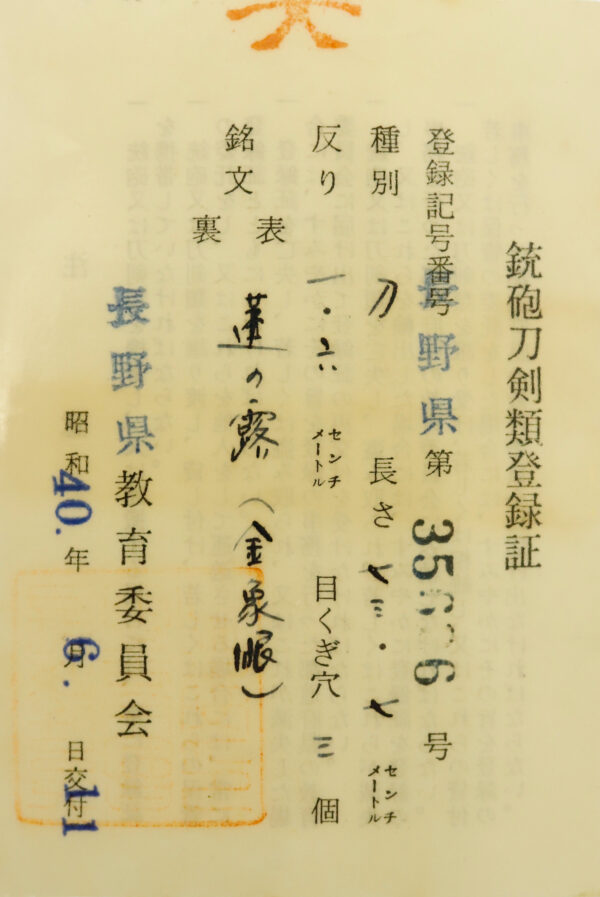 銃砲刀剣類登録証
登録記号番号 長野県 第 号
種別 刀 長さ 七三・七 センチメートル
反り 一・六 センチメートル 目くぎ穴 三 個
銘文 表 蓮の露(金象眼)
裏
長野県教育委員会
昭和40.年6.月11日交付